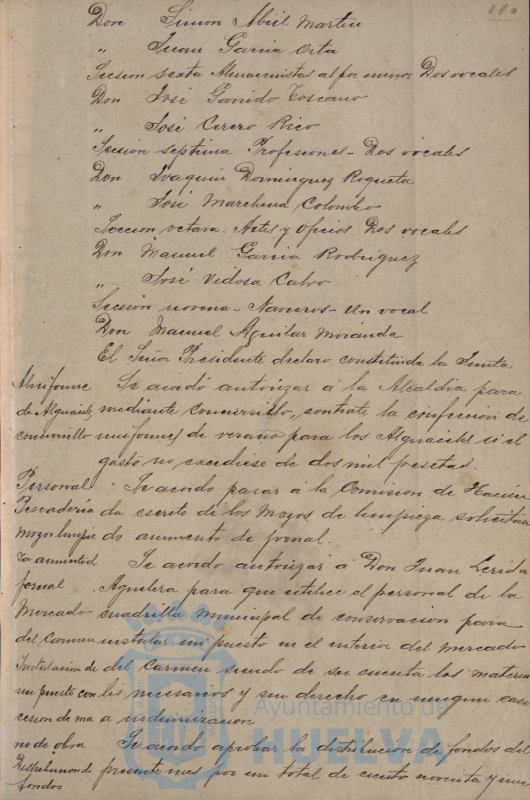 110
Don Simon Abril Martin
" Juan Garcia Orta
Seccion sexta Almacenistas al por menor Dos vocales
Don José Garrido Toscano
" José Cerero Rico
Seccion septima Profesiones - Dos vocales
Don Joaquin Dominguez Roqueta
" José Marchena Colombo
Seccion octava. Artes y Oficios Dos vocales
Don Manuel Garcia Rodriguez
" José Vidosa Calvo
Seccion novena - Navieros - Un vocal
Don Manuel Aguilar Miranda
El Señor Presidente declaro constituida la Junta
Uniforme Se acordó autorizar á la Alcaldia para
de Alguaciles mediante concursillo, contrate la confeccion de
concursillo uniformes de verano para los Alguaciles si el
gasto no excediese de dos mil pesetas.
Personal Se acordo pasar á la Comision de Hacien
Pescaderia da escrito de los mozos de limpieza solicitan
mozos limpie do aumento de jornal.
za aumento Se acordo autorizar á Don Juan Lerida
jornal. Aguilera para que utilice el personal de la
Mercado cuadrilla municipal de conservacion para
del Carmen instalar un puesto en el interior del mercado
Instalacion de del Carmen siendo de su cuenta los materia
un puesto con les necesarios y sin derecho en ningun caso
cesion de ma a indemnizacion
no de obra Se acordo aprobar la distribucion de fondos del
Distribucion de presente mes por un total de ciento noventa y
fondos
Ayuntamiento de
HUELVA